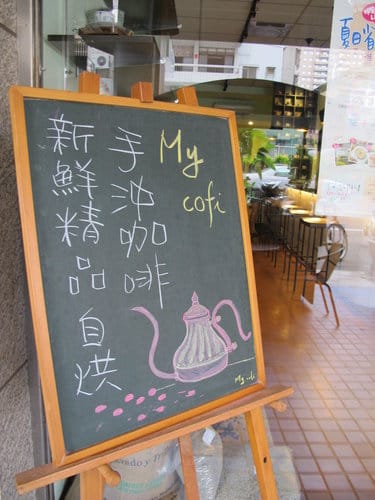 My
cofi
手沖咖啡
新鮮精品自烘
My cofi
夏日省